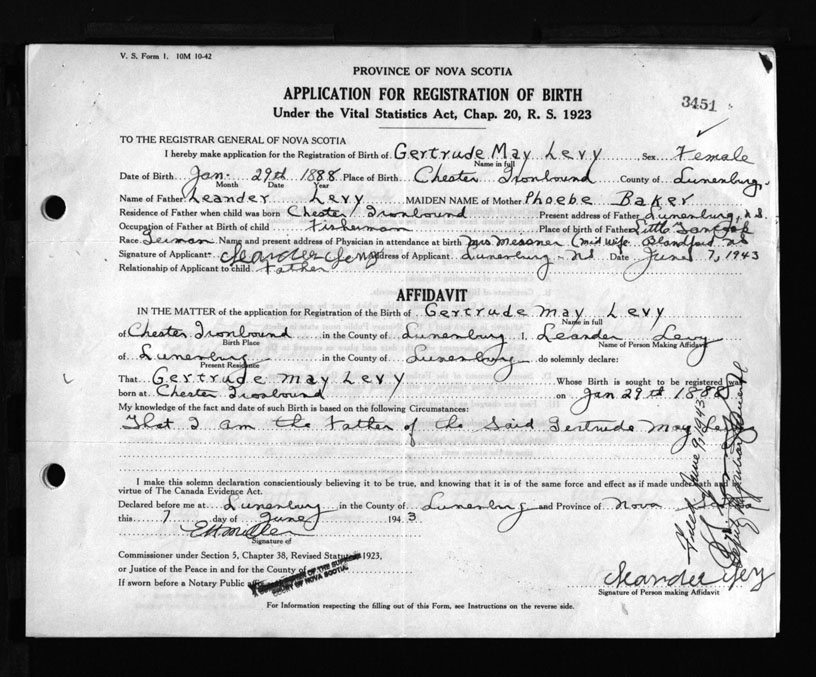 V. S. Form 1. 10M 10-42
PROVINCE OF NOVA SCOTIA
APPLICATION FOR REGISTRATION OF BIRTH
3451
Under the Vital Statistics Act, Chap. 20, R. S. 1923
TO THE REGISTRAR GENERAL OF NOVA SCOTIA
I hereby make application for the Registration of Birth of Gertrude May Levy Sex Female
Name in full
Date of Birth Jan. 29th 1888 Place of Birth Chester Ironbound County of Lunenburg,
Month Date Year
Name of Father Leander Levy MAIDEN NAME of Mother Phoebe Baker
Residence of Father when child was born Chester Ironbound Present address of Father Lunenburg, N.S.
Occupation of Father at Birth of child Fisherman Place of birth of Father Little Tancook
Race German Name and present address of Physician in attendance at birth Mrs Messner (Mid wife Blandford NS
Signature of Applicant Leander Levy Address of Applicant Lunenburg NS Date June 7, 1943
Relationship of Applicant to child Father
AFFIDAVIT
IN THE MATTER of the application for Registration of the Birth of Gertrude May Levy
Name in full
of Chester Ironbound in the County of Lunenburg I, Leander Levy
Birth Place Name of Person Making Affidavit
of Lunenburg in the County of Lunenburg do solemnly declare:
Present Residence
That Gertrude May Levy Whose Birth is sought to be registered was
born at Chester Ironbound on Jan 29th 1888
My knowledge of the fact and date of such Birth is based on the following Circumstances:
That I am the Father of the Said Gertrude May Levy
I make this solemn declaration conscientiously believing it to be true, and knowing that it is of the same force and effect as if made under oath and by
virtue of The Canada Evidence Act.
Declared before me at Lunenburg in the County of Lunenburg and Province of Nova Scotia
this 7 day of June 1943
Signature of
Commissioner under Section 5, Chapter 38, Revised Statutes 1923,
or Justice of the Peace in and for the County of
If sworn before a Notary Public
OF THE SUPREME
COURT OF NOVA SCOTIA
Leander Levy
Signature of Person making Affidavit
For Information respecting the filling out of this Form, see Instructions on the reverse side.
Filed June 9, 1943
Deputy Registrar General